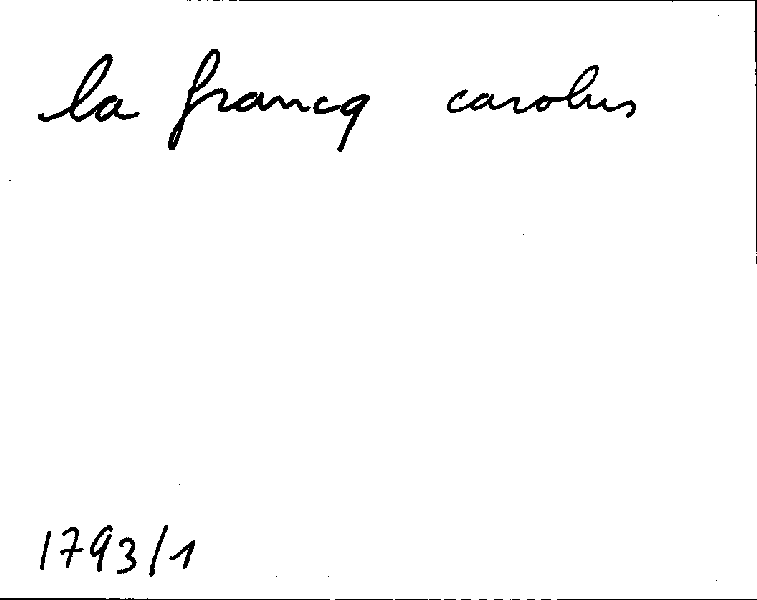 la francq carolus
1793/1